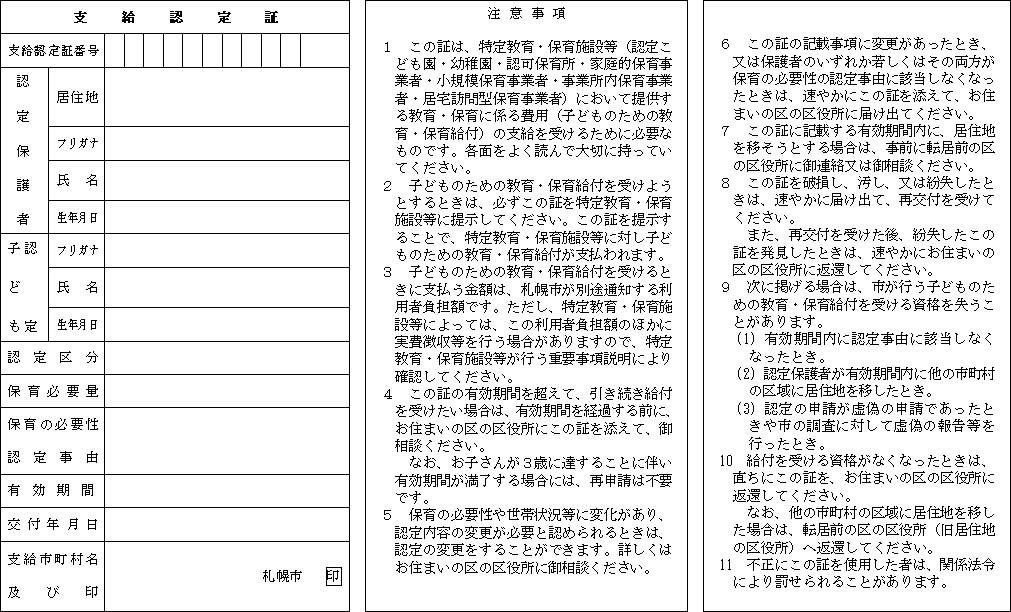 支給認定証
支給認定証番号
認定保護者
居住地
フリガナ
氏名
生年月日
認定子ども
フリガナ
氏名
生年月日
認定区分
保育必要量
保育の必要性
認定事由
有効期間
交付年月日
支給市町村名
及び印
札幌市 印
注意事項
1 この証は、特定教育・保育施設等（認定こ
ども園・幼稚園・認可保育所・家庭的保育事
業者・小規模保育事業者・事業所内保育事業
者・居宅訪問型保育事業者）において提供す
る教育・保育に係る費用（子どものための教
育・保育給付）の支給を受けるために必要な
ものです。各面をよく読んで大切に持ってい
てください。
2 子どものための教育・保育給付を受けよう
とするときは、必ずこの証を特定教育・保育
施設等に提示してください。この証を提示す
ることで、特定教育・保育施設等に対し子ど
ものための教育・保育給付が支払われます。
3 子どものための教育・保育給付を受けると
きに支払う金額は、札幌市が別途通知する利
用者負担額です。ただし、特定教育・保育施
設等によっては、この利用者負担額のほかに
実費徴収等を行う場合がありますので、特定
教育・保育施設等が行う重要事項説明により
確認してください。
4 この証の有効期間を超えて、引き続き給付
を受けたい場合は、有効期間を経過する前に、
お住まいの区の区役所にこの証を添えて、御
相談ください。
なお、お子さんが３歳に達することに伴い
有効期間が満了する場合には、再申請は不要
です。
5 保育の必要性や世帯状況等に変化があり、
認定内容の変更が必要と認められるときは、
認定の変更をすることができます。詳しくは
お住まいの区の区役所に御相談ください。
6 この証の記載事項に変更があったとき、
又は保護者のいずれか若しくはその両方が
保育の必要性の認定事由に該当しなくなっ
たときは、速やかにこの証を添えて、お住
まいの区の区役所に届け出てください。
7 この証に記載する有効期間内に、居住地
を移そうとする場合は、事前に転居前の区
の区役所に御連絡又は御相談ください。
8 この証を破損し、汚し、又は紛失したと
きは、速やかに届け出て、再交付を受けて
ください。
また、再交付を受けた後、紛失したこの
証を発見したときは、速やかにお住まいの
区の区役所に返還してください。
9 次に掲げる場合は、市が行う子どものた
めの教育・保育給付を受ける資格を失うこ
とがあります。
(1) 有効期間内に認定事由に該当しなく
なったとき。
(2) 認定保護者が有効期間内に他の市町村
の区域に居住地を移したとき。
(3) 認定の申請が虚偽の申請であったと
きや市の調査に対して虚偽の報告等を
行ったとき。
10 給付を受ける資格がなくなったときは、
直ちにこの証を、お住まいの区の区役所に
返還してください。
なお、他の市町村の区域に居住地を移し
た場合は、転居前の区の区役所（旧居住地
の区役所）へ返還してください。
11 不正にこの証を使用した者は、関係法令
により罰せられることがあります。